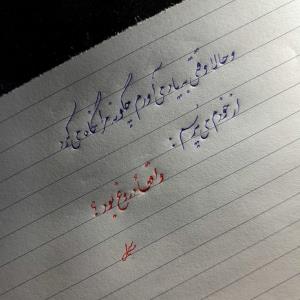 و حالا وقتی به یاد می آورم چگونه مرا نگاه می کرد
از خودم می پرسم :
واقعاً دروغ بود ؟